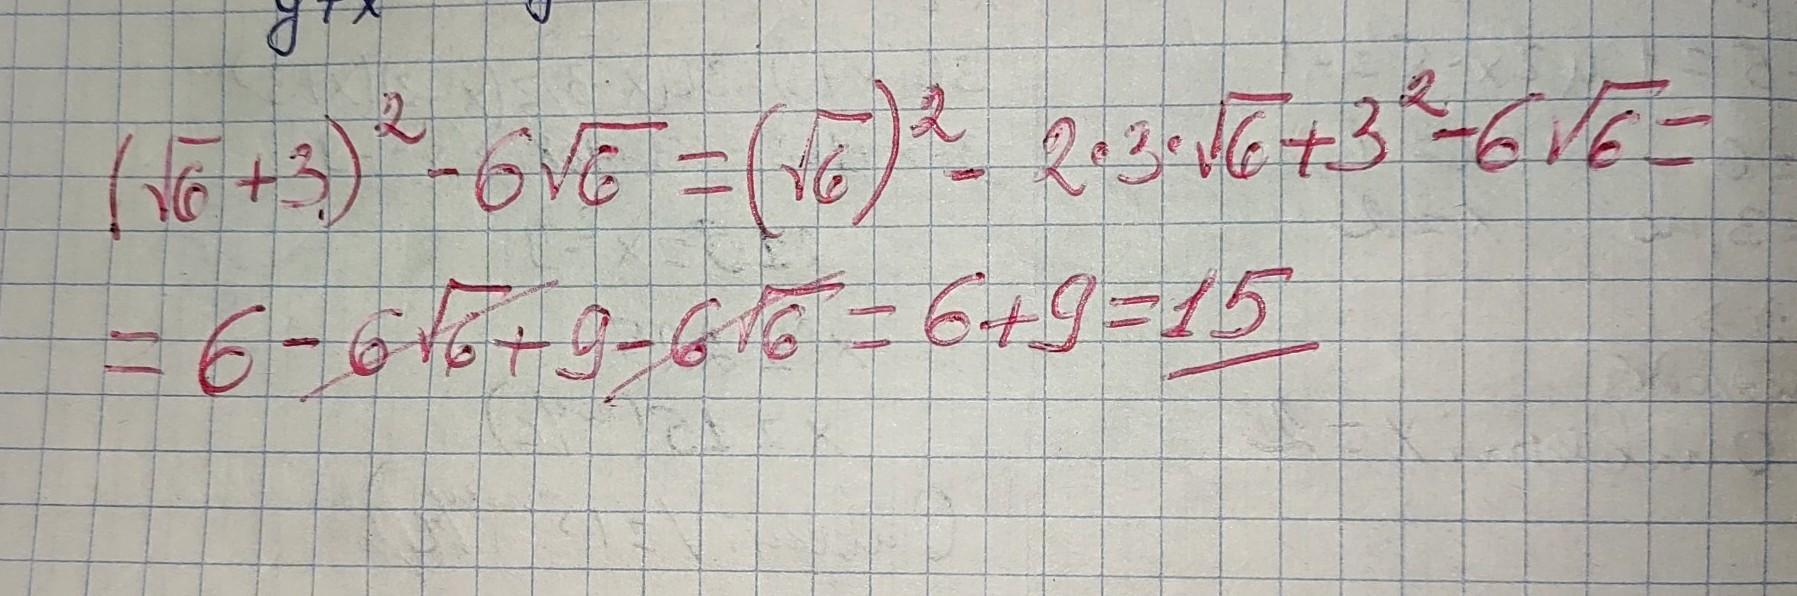 y+x
(√6 + 3)² - 6√6 = (√6)² - 2·3·√6 + 3² - 6√6 =
= 6 - 6√6 + 9 - 6√6 = 6 + 9 = 15